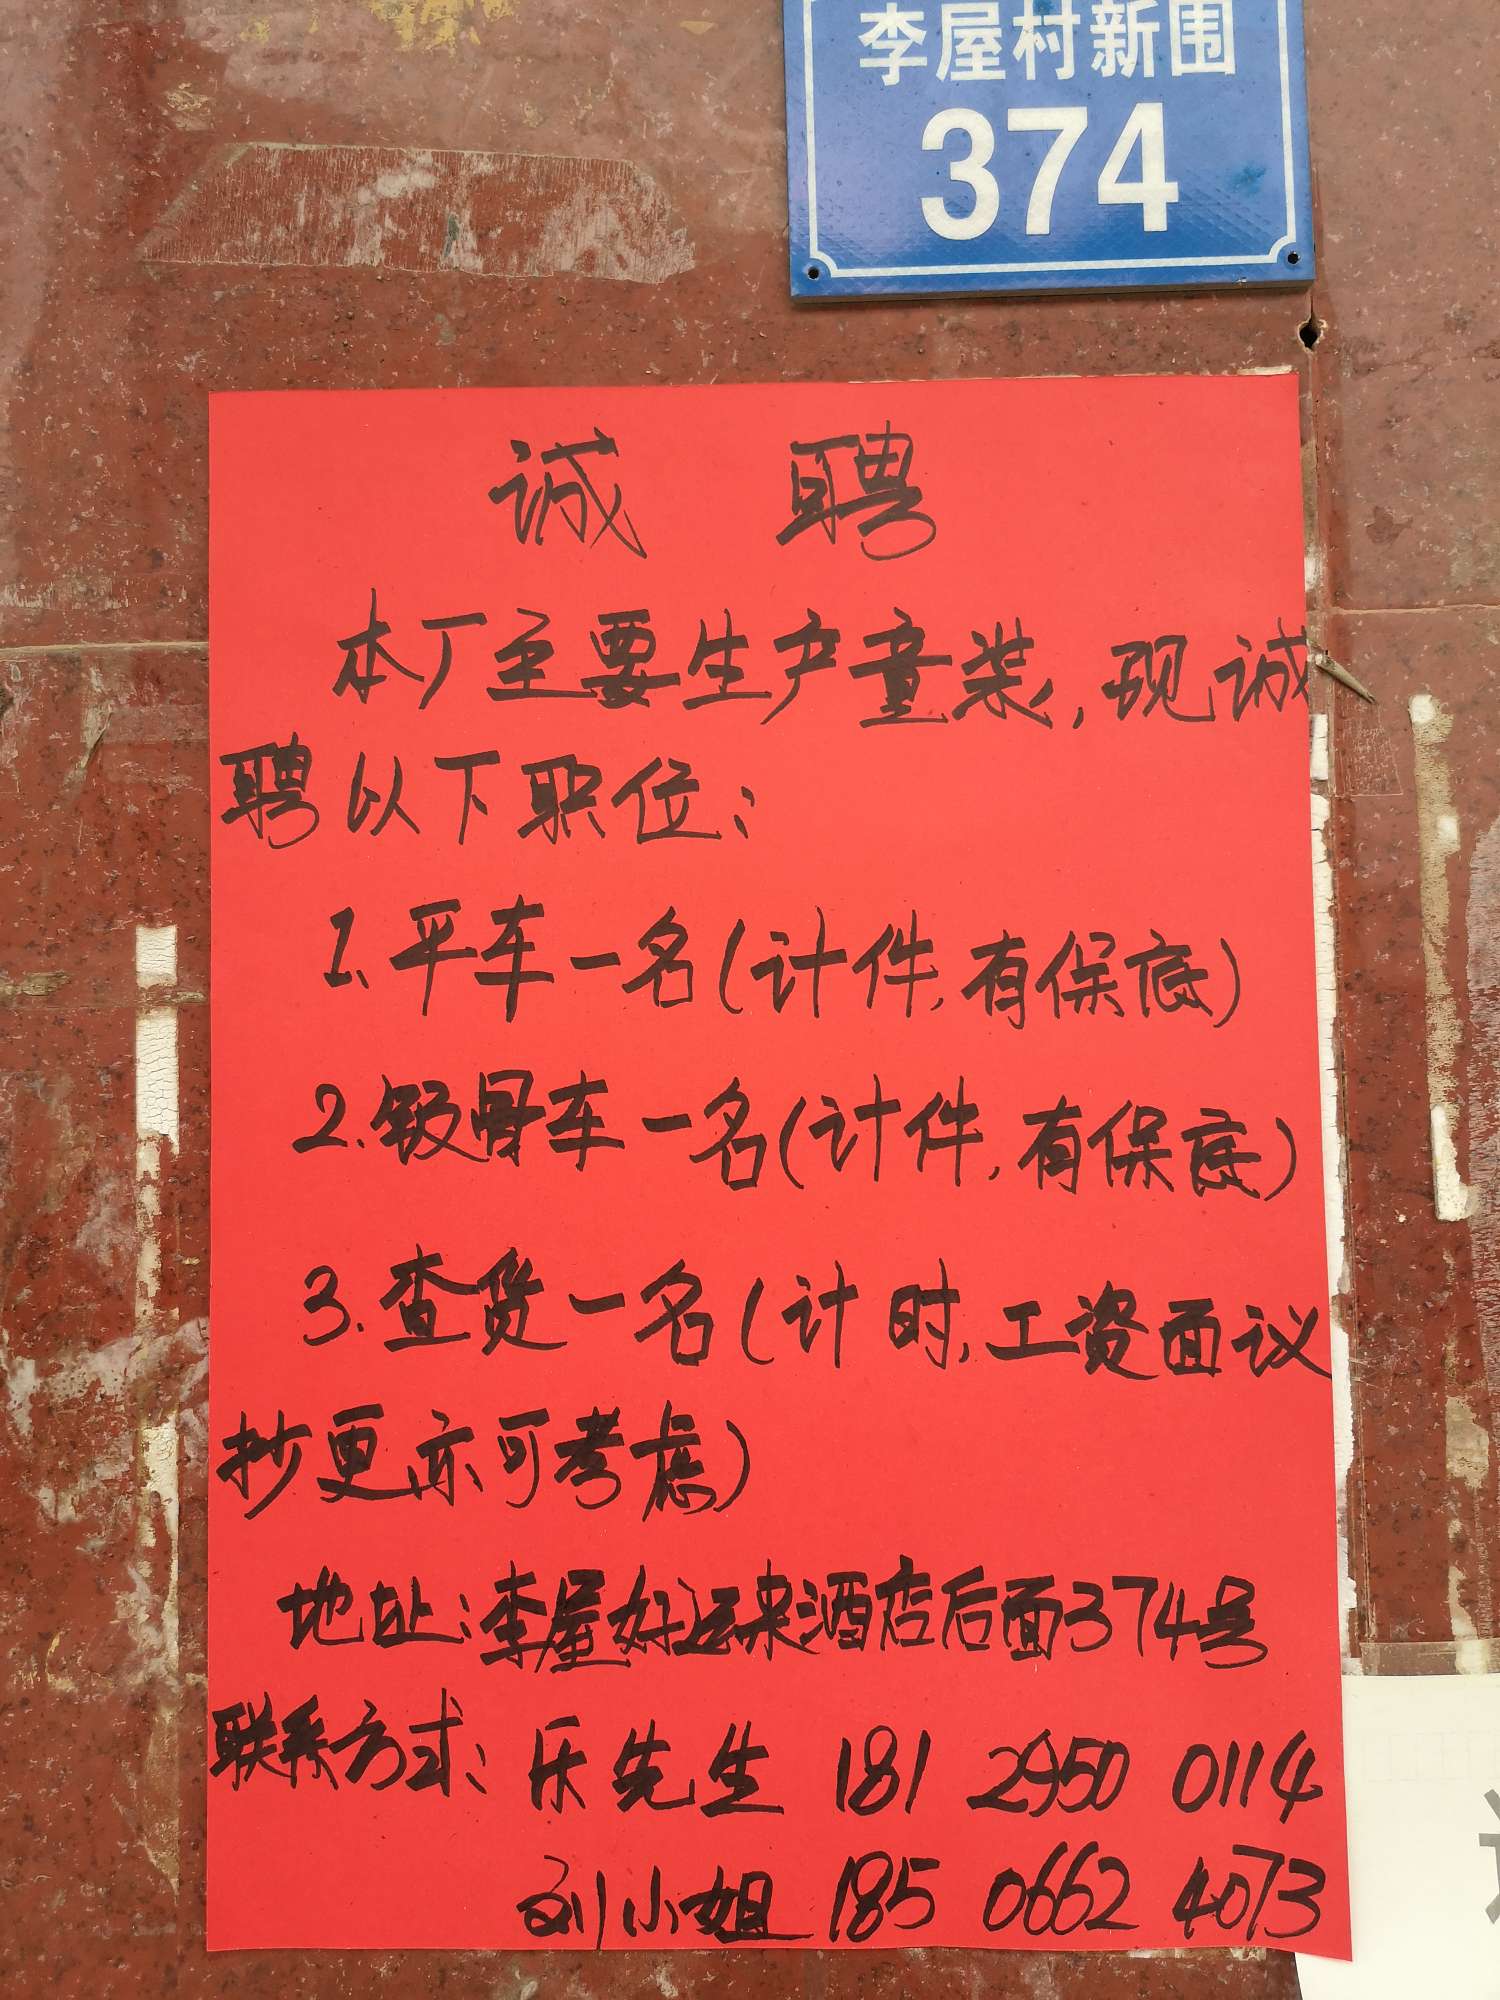 李屋村新围
374
诚 聘
本厂主要生产童装,现诚
聘以下职位:
1.平车一名(计件,有保底)
2.钑骨车一名(计件,有保底)
3.查货一名(计时,工资面议
抄更亦可考虑)
地址:李屋好运来酒店后面374号
联系方式:乐先生 181 2950 0114
刘小姐 185 0662 4073